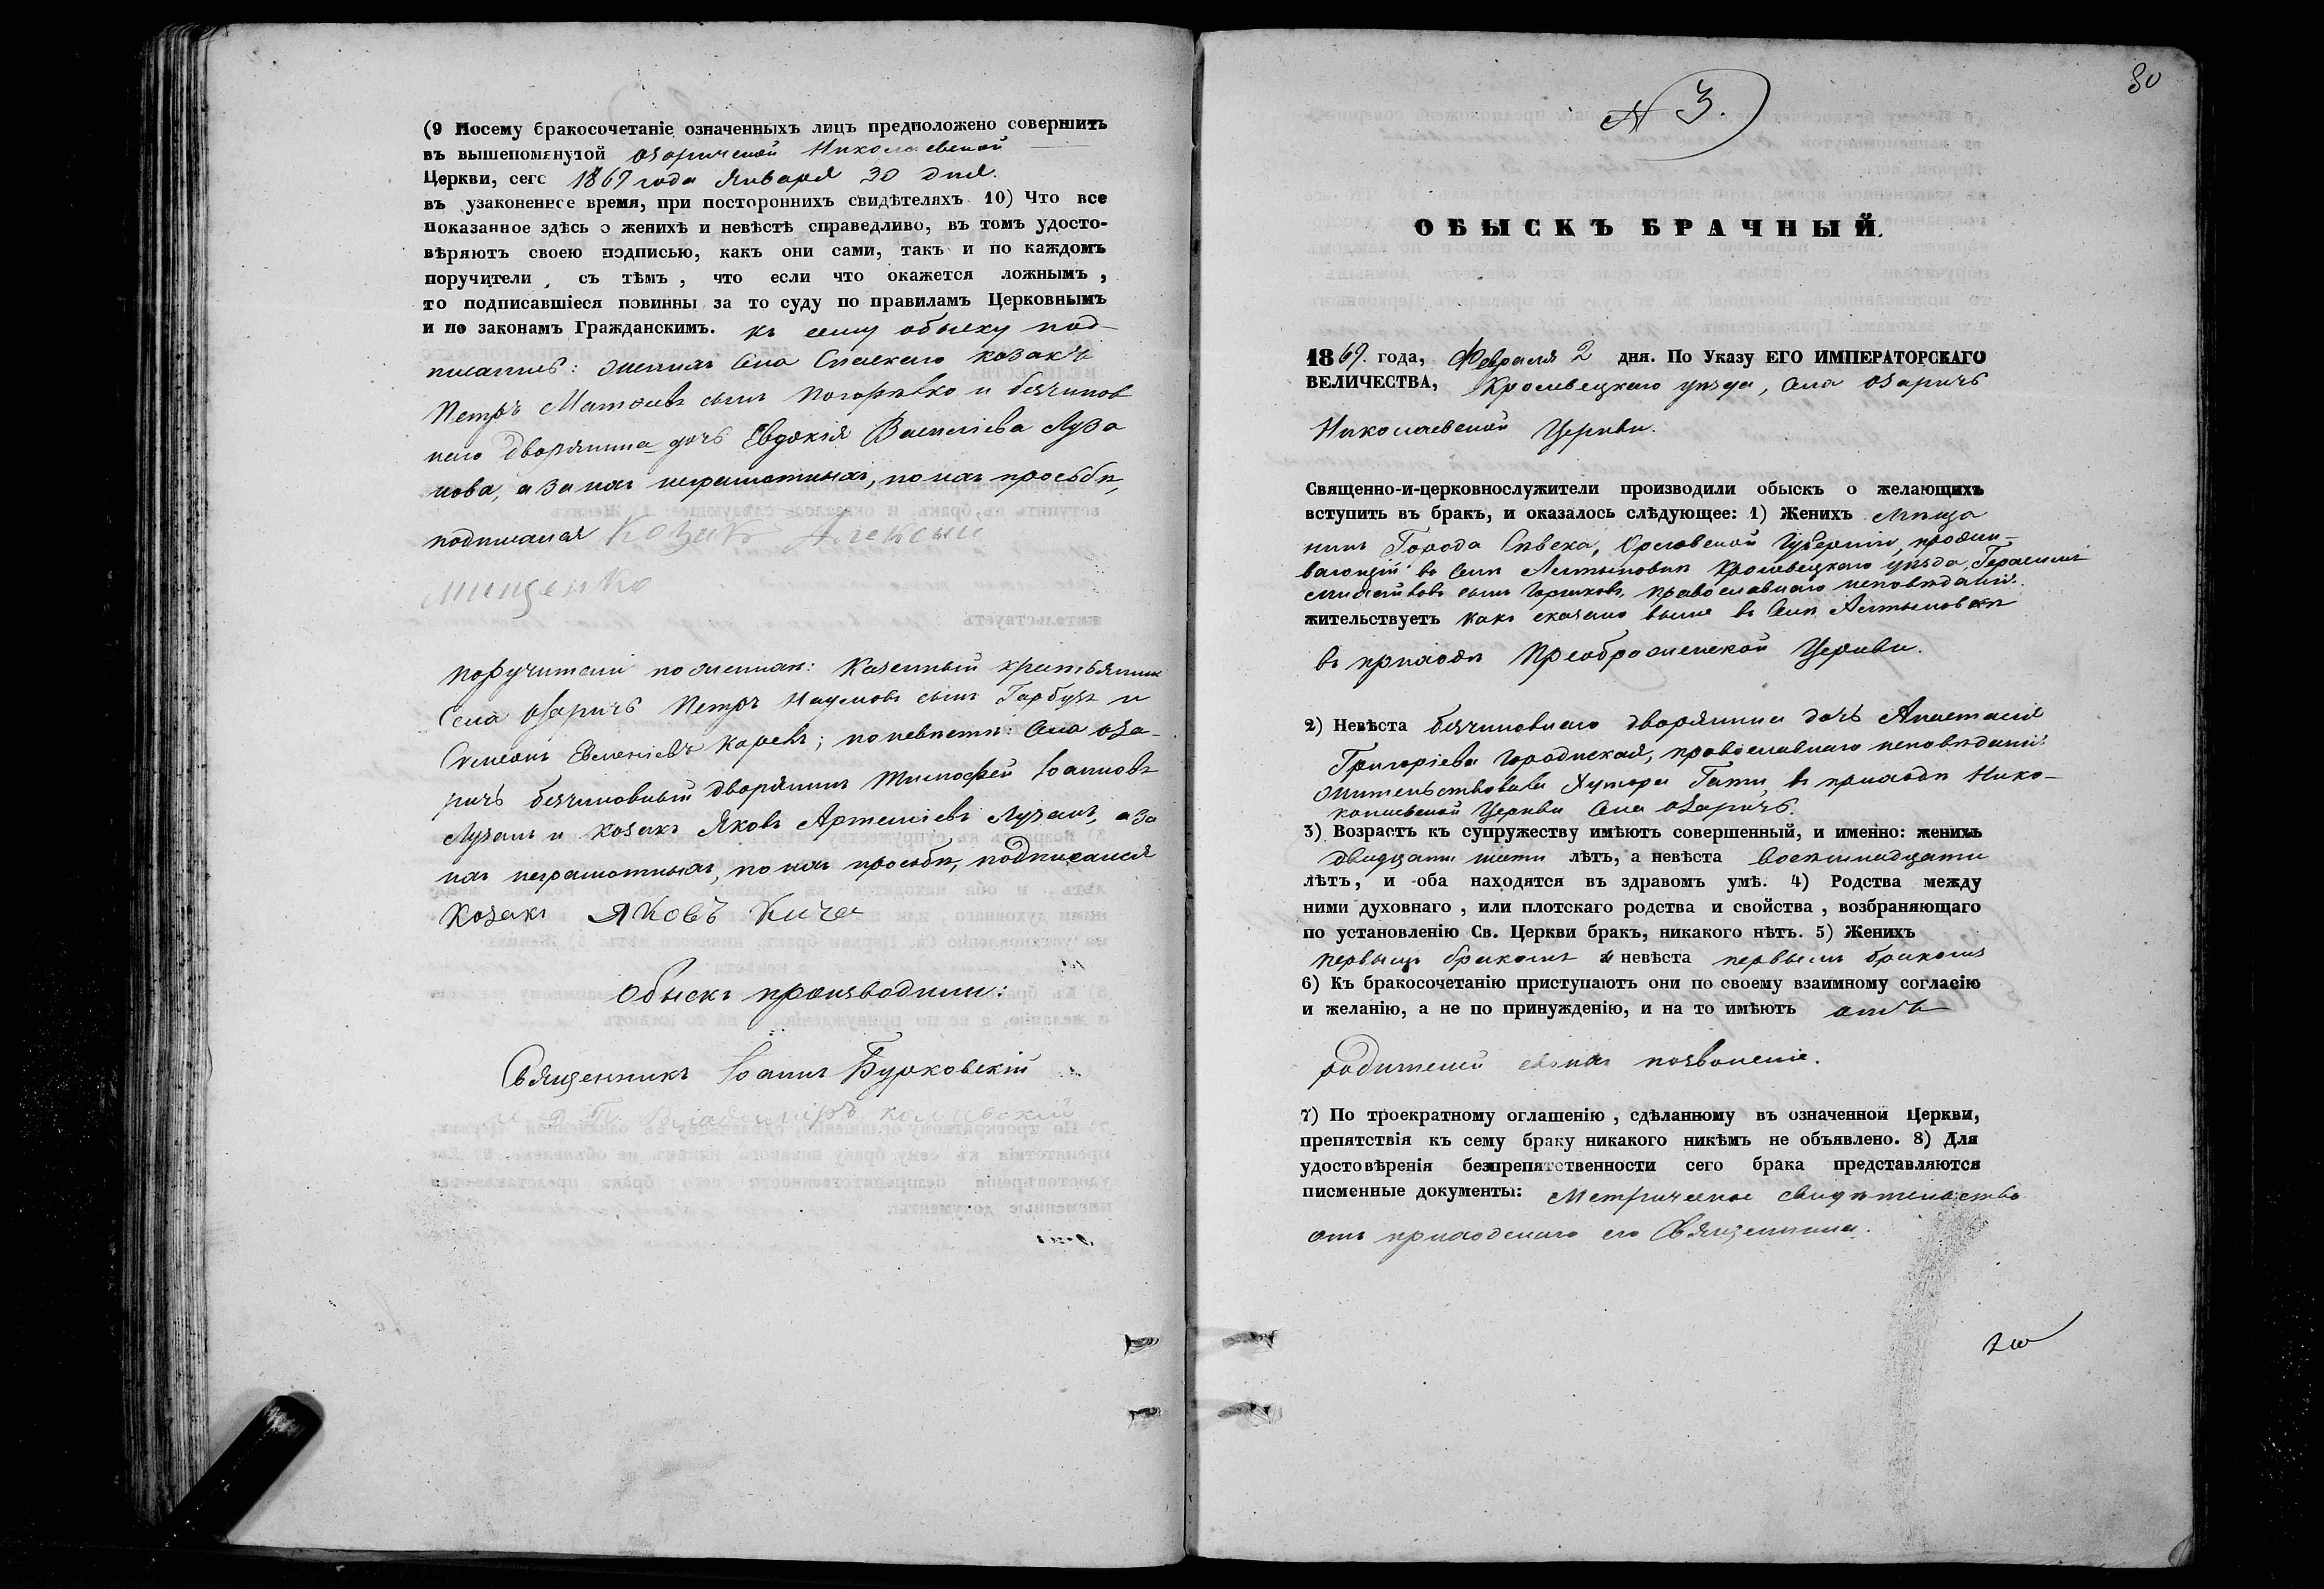 (9 Посему бракосочетаніе означенныхъ лицъ предположено совершить
въ вышепомянутой Озаричской Николаевской
Церкви, сего 1869 года Января 30 дня.
въ узаконенное время, при постороннихъ свидѣтеляхъ 10) Что все
показанное здѣсь о женихѣ и невѣстѣ справедливо, въ томъ удосто-
вѣряютъ своею подписью, какъ они сами, такъ и по каждомъ
поручители, съ тѣмъ, что если что окажется ложнымъ,
то подписавшіеся повинны за то суду по правиламъ Церковнымъ
и по законамъ Гражданскимъ. къ сему обыску под-
писались: женихъ Села Спаскаго козакъ
Петръ Матѳіевъ сынъ Погорѣлко и безчинов
наго дворянина дочь Евдокія Василіева Луза
нова, а за нихъ неграмотныхъ, по ихъ просьбѣ,
подписался Козакъ Алексѣй
мищенко
Поручители по женихѣ: Казенный крестьянинъ
Села Озаричъ Петръ Наумовъ сынъ Гарбузъ и
Симеонъ Евменіевъ Коревъ; по невѣстѣ: Села Оза-
ричъ безчиновный дворянинъ Тимофей Іоанновъ
Лузанъ и козакъ Яковъ Артеміевъ Лузанъ, а за
ихъ неграмотныхъ, по ихъ просьбѣ, подписался
Козакъ Яковъ Кича
Обыскъ производили:
Священникъ Іоаннъ Бурковскій
Владиміръ
80
N 3.
ОБЫСКЪ БРАЧНЫЙ.
1869. года, Февраля 2 дня. По Указу ЕГО ИМПЕРАТОРСКАГО
ВЕЛИЧЕСТВА, Кролевецкаго уѣзда, Села Озаричъ
Николаевской Церкви.
Священно-и-церковнослужители производили обыскъ о желающихъ
вступить въ бракъ, и оказалось слѣдующее: 1) Женихъ мѣща
нинъ Города Сѣвска, Орловской Губерніи, прожи-
вающій въ Селѣ Алтыновкѣ Кролевецкаго уѣзда, Герасимъ
сынъ Горшковъ, православнаго исповѣданія.
жительствуетъ какъ сказано выше въ Селѣ Алтыновкѣ
въ приходѣ Преображенской Церкви.
2) Невѣста безчиновнаго дворянина дочь Анастасія
Григоріева Городиская, православнаго исповѣданія
жительствовала Хутора Гати, въ приходѣ Нико-
лаевской Церкви Села Озаричъ.
3) Возрастъ къ супружеству имѣютъ совершенный, и именно: женихъ
двадцати шести лѣтъ, а невѣста восемнадцати
лѣтъ, и оба находятся въ здравомъ умѣ. 4) Родства между
ними духовнаго, или плотскаго родства и свойства, возбраняющаго
по установленію Св. Церкви бракъ, никакого нѣтъ. 5) Женихъ
первымъ бракомъ а невѣста первымъ бракомъ
6) Къ бракосочетанію приступаютъ они по своему взаимному согласію
и желанію, а не по принужденію, и на то имѣютъ отъ
родителей своихъ позволеніе.
7) По троекратному оглашенію, сдѣланному въ означенной Церкви,
препятствія къ сему браку никакого никѣмъ не объявлено. 8) Для
удостовѣренія безпрепятственности сего брака представляются
писменные документы: Метрическое свидѣтельство
отъ приходскаго его Священника.